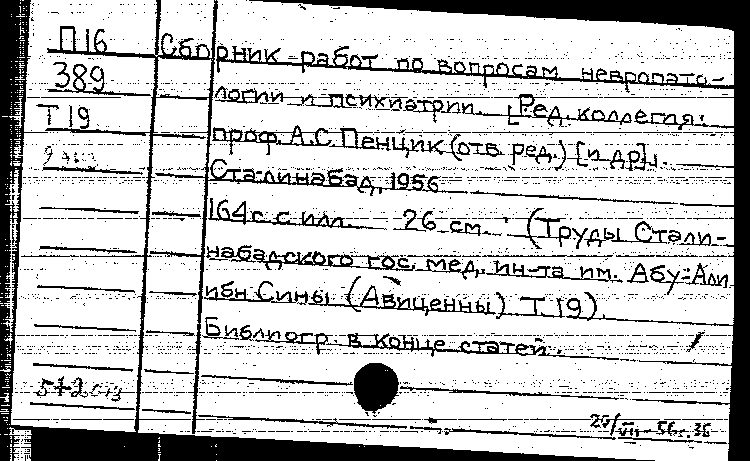 П16
389
Т19
Сборник работ по вопросам невропато-
логии и психиатрии. [Ред. коллегия:
проф. А.С. Пенцик (отв. ред.) [и др].
Сталинабад, 1956
164 с. с илл. 26 см. (Труды Стали-
набадского гос. мед. ин-та им. Абу-Али
ибн Сины (Авиценны) Т 19).
Библиогр. в конце статей.
25/VII-56г. 35